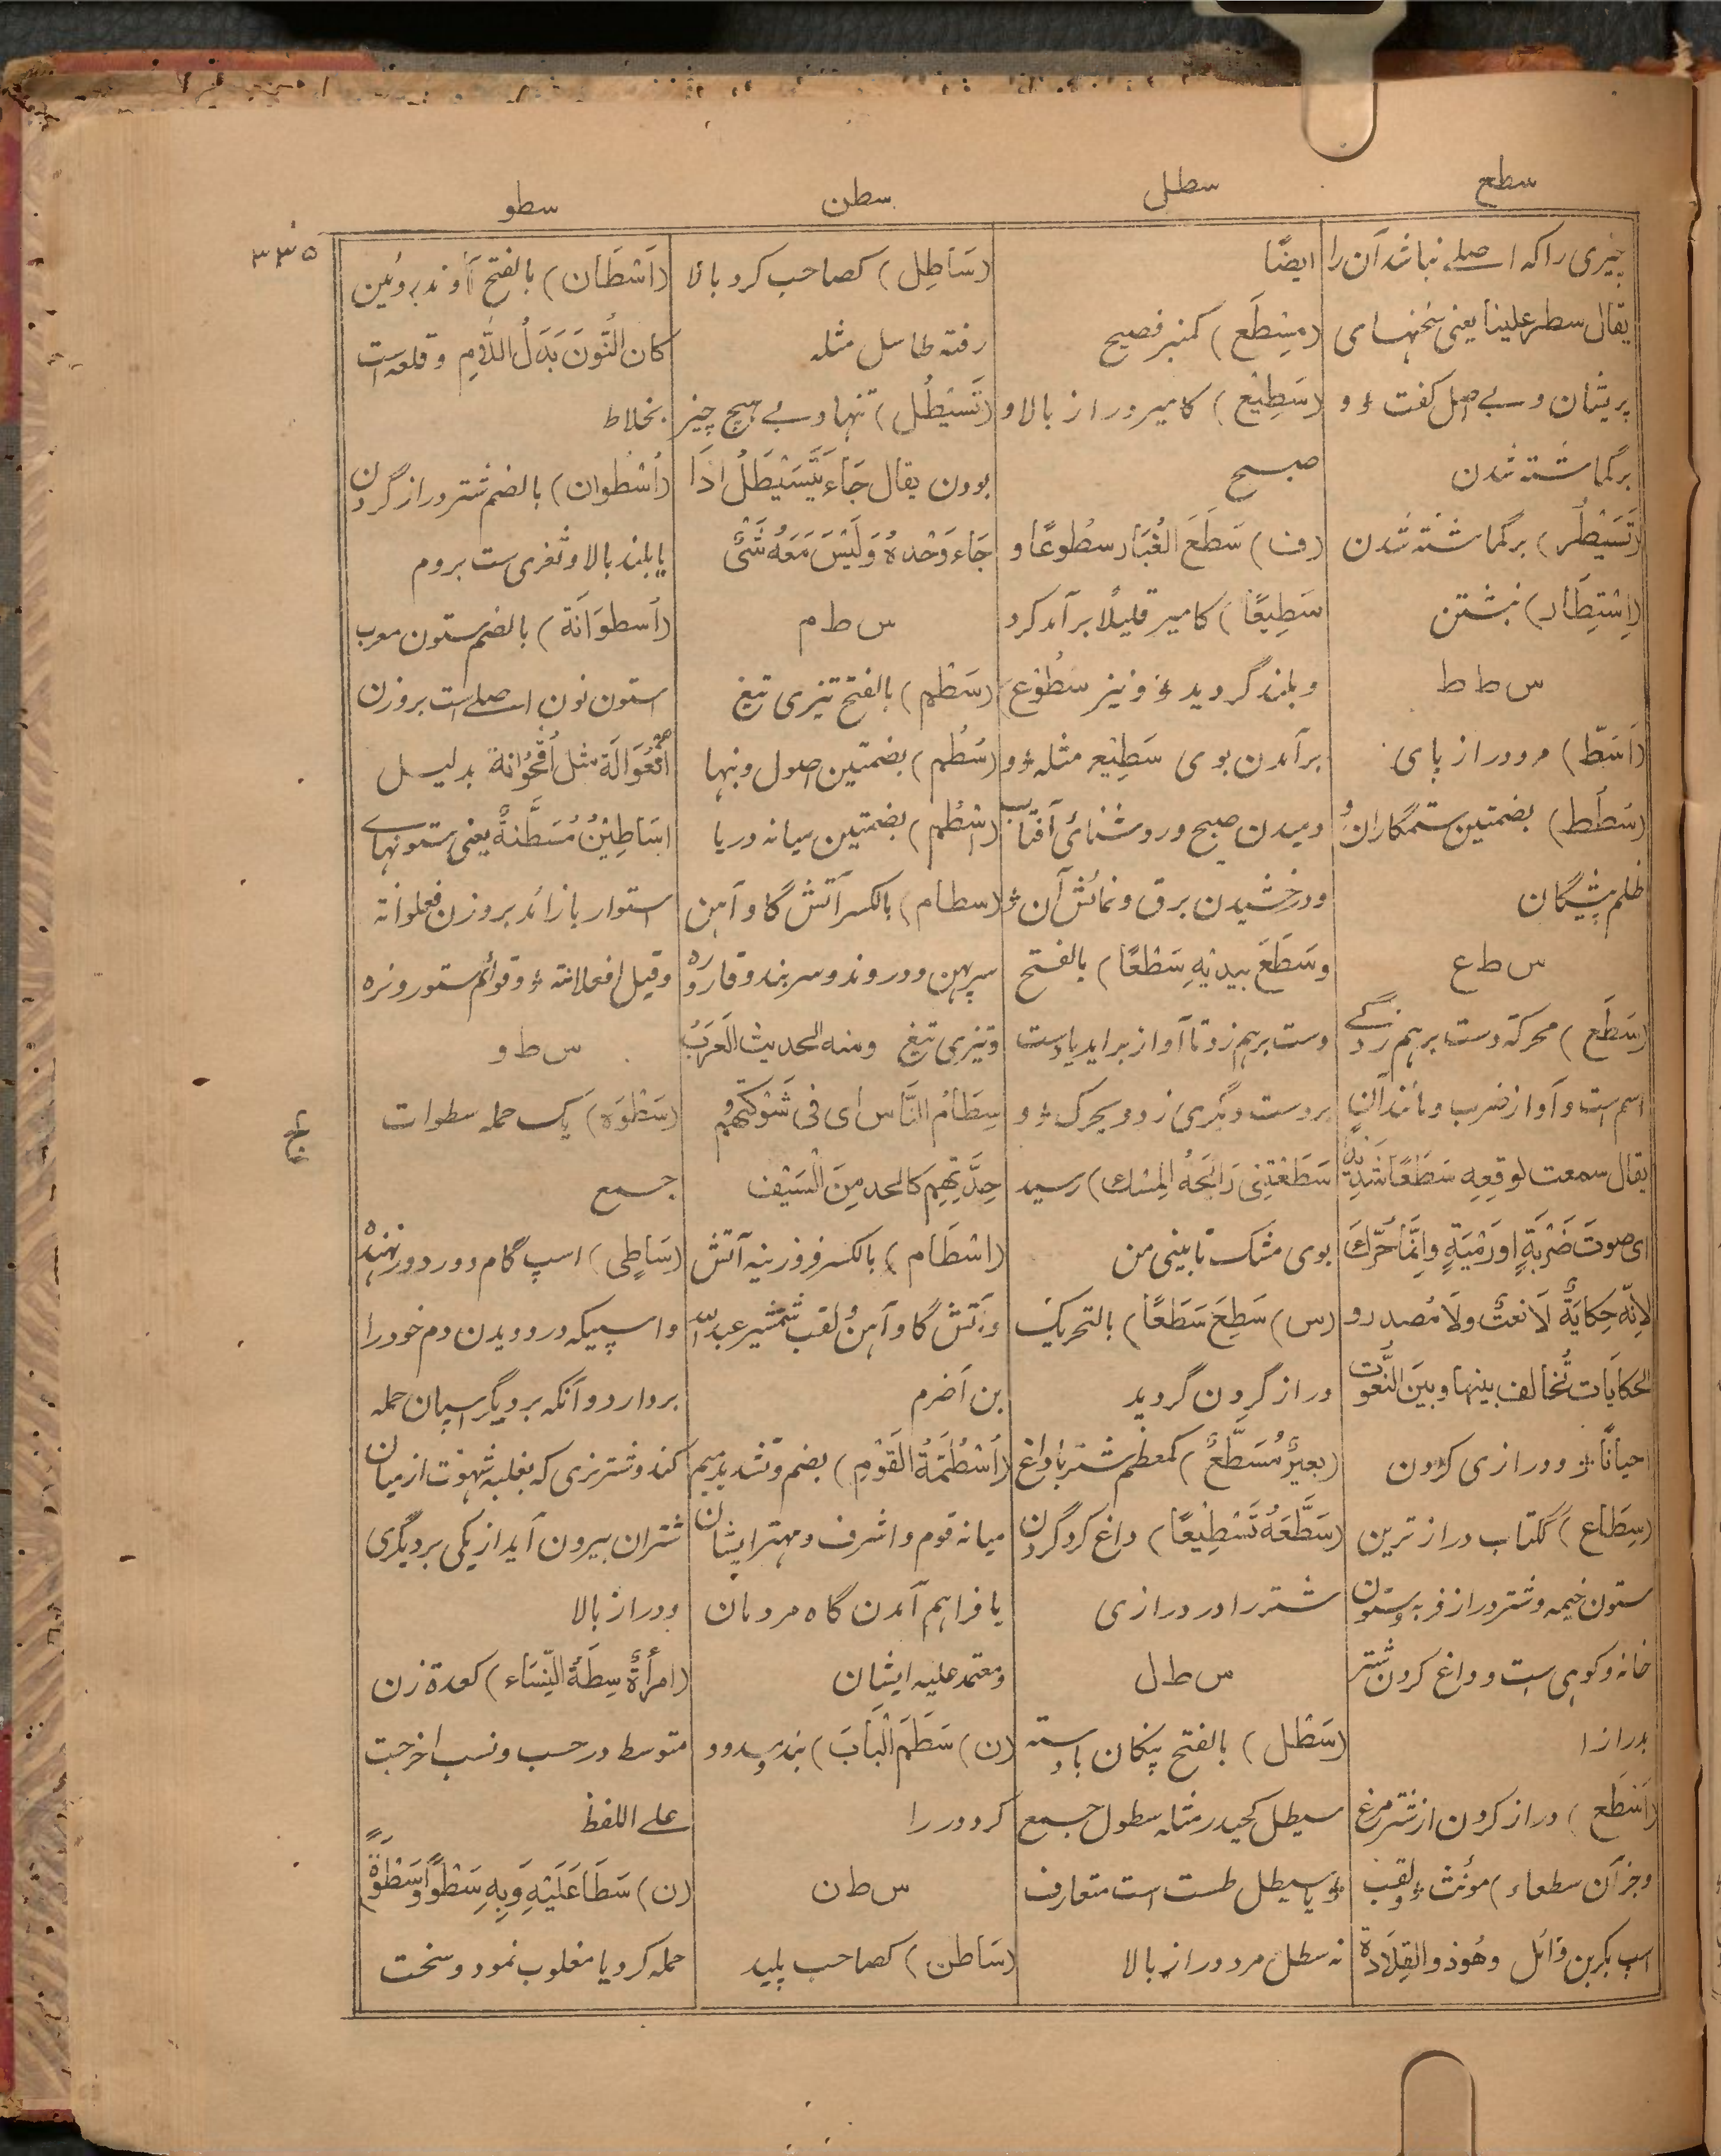 سطع
سطل
سطن
سطو
۳۳۵
چیزی را که اصلے نباشد آن را
یقال سطر علینا یعنی سخنهای
پریشان و بے اصل گفت ؤ و
برگماشته شدن
(تَسَیْطُر) برگماشته شدن
(اِسْتِطَار) نبشتن
س ط ط
(اَسَطّ) مرد دراز پای
(سُطُط) بضمتین ستمگاران و
ظلم پیشگان
س ط ع
(سَطَع) محرکة دست برهم زدگے
اسم است و آواز ضرب و مانند آن
یقال سمعت لوقعِهِ سَطَعًا شَدِیْدًا
ای صوتَ ضَرْبَةٍ او رَمْیَةٍ وانَّمَا حُرِّكَ
لِانّهٗ حِکایَةٌ لَا نعتٌ ولَا مُصدر و
الحکایَات تُخالف بینها و بینَ النُّعُوت
احیانًا ؤ و درازی گردن
(سِطَاع) ککتاب دراز ترین
ستون خیمه و شتر دراز فربه و ستون
خانه و کوهی ست و داغ کردن شتر
بدرازا
(اَسْطَع) دراز گردن از شترمرغ
و جز آن سطعاء) مؤنث ؤ و لقب
اسپ بکر بن وائل وهُوَ ذو القِلَادة
ایضًا
(مِسْطَع) کمنبر فصیح
(سَطِیْع) کامیر دراز بالا و
صبح
(ف) سَطَعَ الغُبَار سطُوعًا و
سَطِیعًا) کامیر قلیلًا برآمد گرد
و بلند گردید ؤ و نیز سطُوْع
برآمدن بوی سَطِیْع مثله ؤ و
دمیدن صبح و روشنائی آفتاب
و درخشیدن برق و نمائش آن ؤ
وسَطَعَ بیدیْهِ سَطْعًا) بالفتح
دست برهم زد تا آواز برآید یا دست
بر دست دیگری زد و یحرك ؤ و
سَطَعَتْنِی رَائِحَةُ المِسْك) رسید
بوی مشک تا بینی من
(س) سَطِعَ سَطَعًا) بالتحریک
دراز گردن گردید
(بعیرٌ مُسَطَّعٌ) کمعظم شتر با داغ
(سَطَّعَهٗ تَسْطِیْعًا) داغ کرد گردن
شتر را در درازی
س ط ل
(سَطْل) بالفتح پنکان با دسته
سیطل کحیدر مثله سطول جمع
ؤ یا سیطل طست است متعارف
نه سطل مرد دراز بالا
(سَاطِل) کصاحب گرد بالا
رفته طاسل مثله
(تَسَیْطُل) تنها و بے هیچ چیز
بودن یقال جَاءَ یَتَسَیْطَلُ اذَا
جَاءَ وَحْدهٗ وَلَیْسَ مَعَهٗ شَیْءٌ
س ط م
(سَطْم) بالفتح تیزی تیغ
(سُطُم) بضمتین اصول و بنها
(اسْطُم) بضمتین میانه دریا
(سطام) بالکسر آتش گاو آهن
سرپهن و دروند و سربند قاروره
و تیزی تیغ ومنه الحدیث العَرَبُ
سِطَامُ النَّاس ای فی شَوْکَتِهِمْ و
حِدَّتِهِم کالحد مِنَ السَّیْف
(اسْطَام) بالکسر فروزینه آتش
و آتش گاو آهن و لقب شمشیر عبدالله
بن اَضرم
(اُسْطُمَّةُ القَوْم) بضم و تشدید میم
میانه قوم و اشرف و مهتر ایشان
یا فراهم آمدن گاه مردمان
و معتمد علیه ایشان
(ن) سَطَمَ الْبَابَ) بند
کرد در را
س ط ن
(سَاطن) کصاحب پلید
(اَسْطَان) بالفتح آوند روئین
کان النُّونَ بَدَلُ اللَّامِ و قلعه است
بخلاط
(اُسْطُوان) بالضم شتر دراز گردن
یا بلند بالا و ثغری ست بروم
(اُسطوَانَة) بالضم ستون معرب
استون نون اصلے است بر وزن
اُفْعُوَالَة مثل اُقْحُوَانة بدلیل
اسَاطِیْنُ مُسَطَّنةٌ یعنی ستونهاے
استوار یا زائد بر وزن فعلوانه
و قیل افعلانة ؤ و قوائم ستور و نره
س ط و
(سَطْوَة) یک حمله سطوات
جمع
(سَاطِی) اسپ گام دور دور نهنده
و اسپیکه در دویدن دم خود را
بردارد و آنکه بر دیگر اسپان حمله
کند و شتر نری که بغلبه شهوت از میان
شتران بیرون آید از یکی بر دیگری
و دراز بالا
(امرأةٌ سِطَةُ النِّسَاء) کعدة زن
متوسط در حسب و نسب اخرجت
علے اللفظ
(ن) سَطَا عَلَیْهِ وَبِهِ سَطْوًا وَسَطْوَةً)
حمله کرد یا مغلوب نمود و سخت